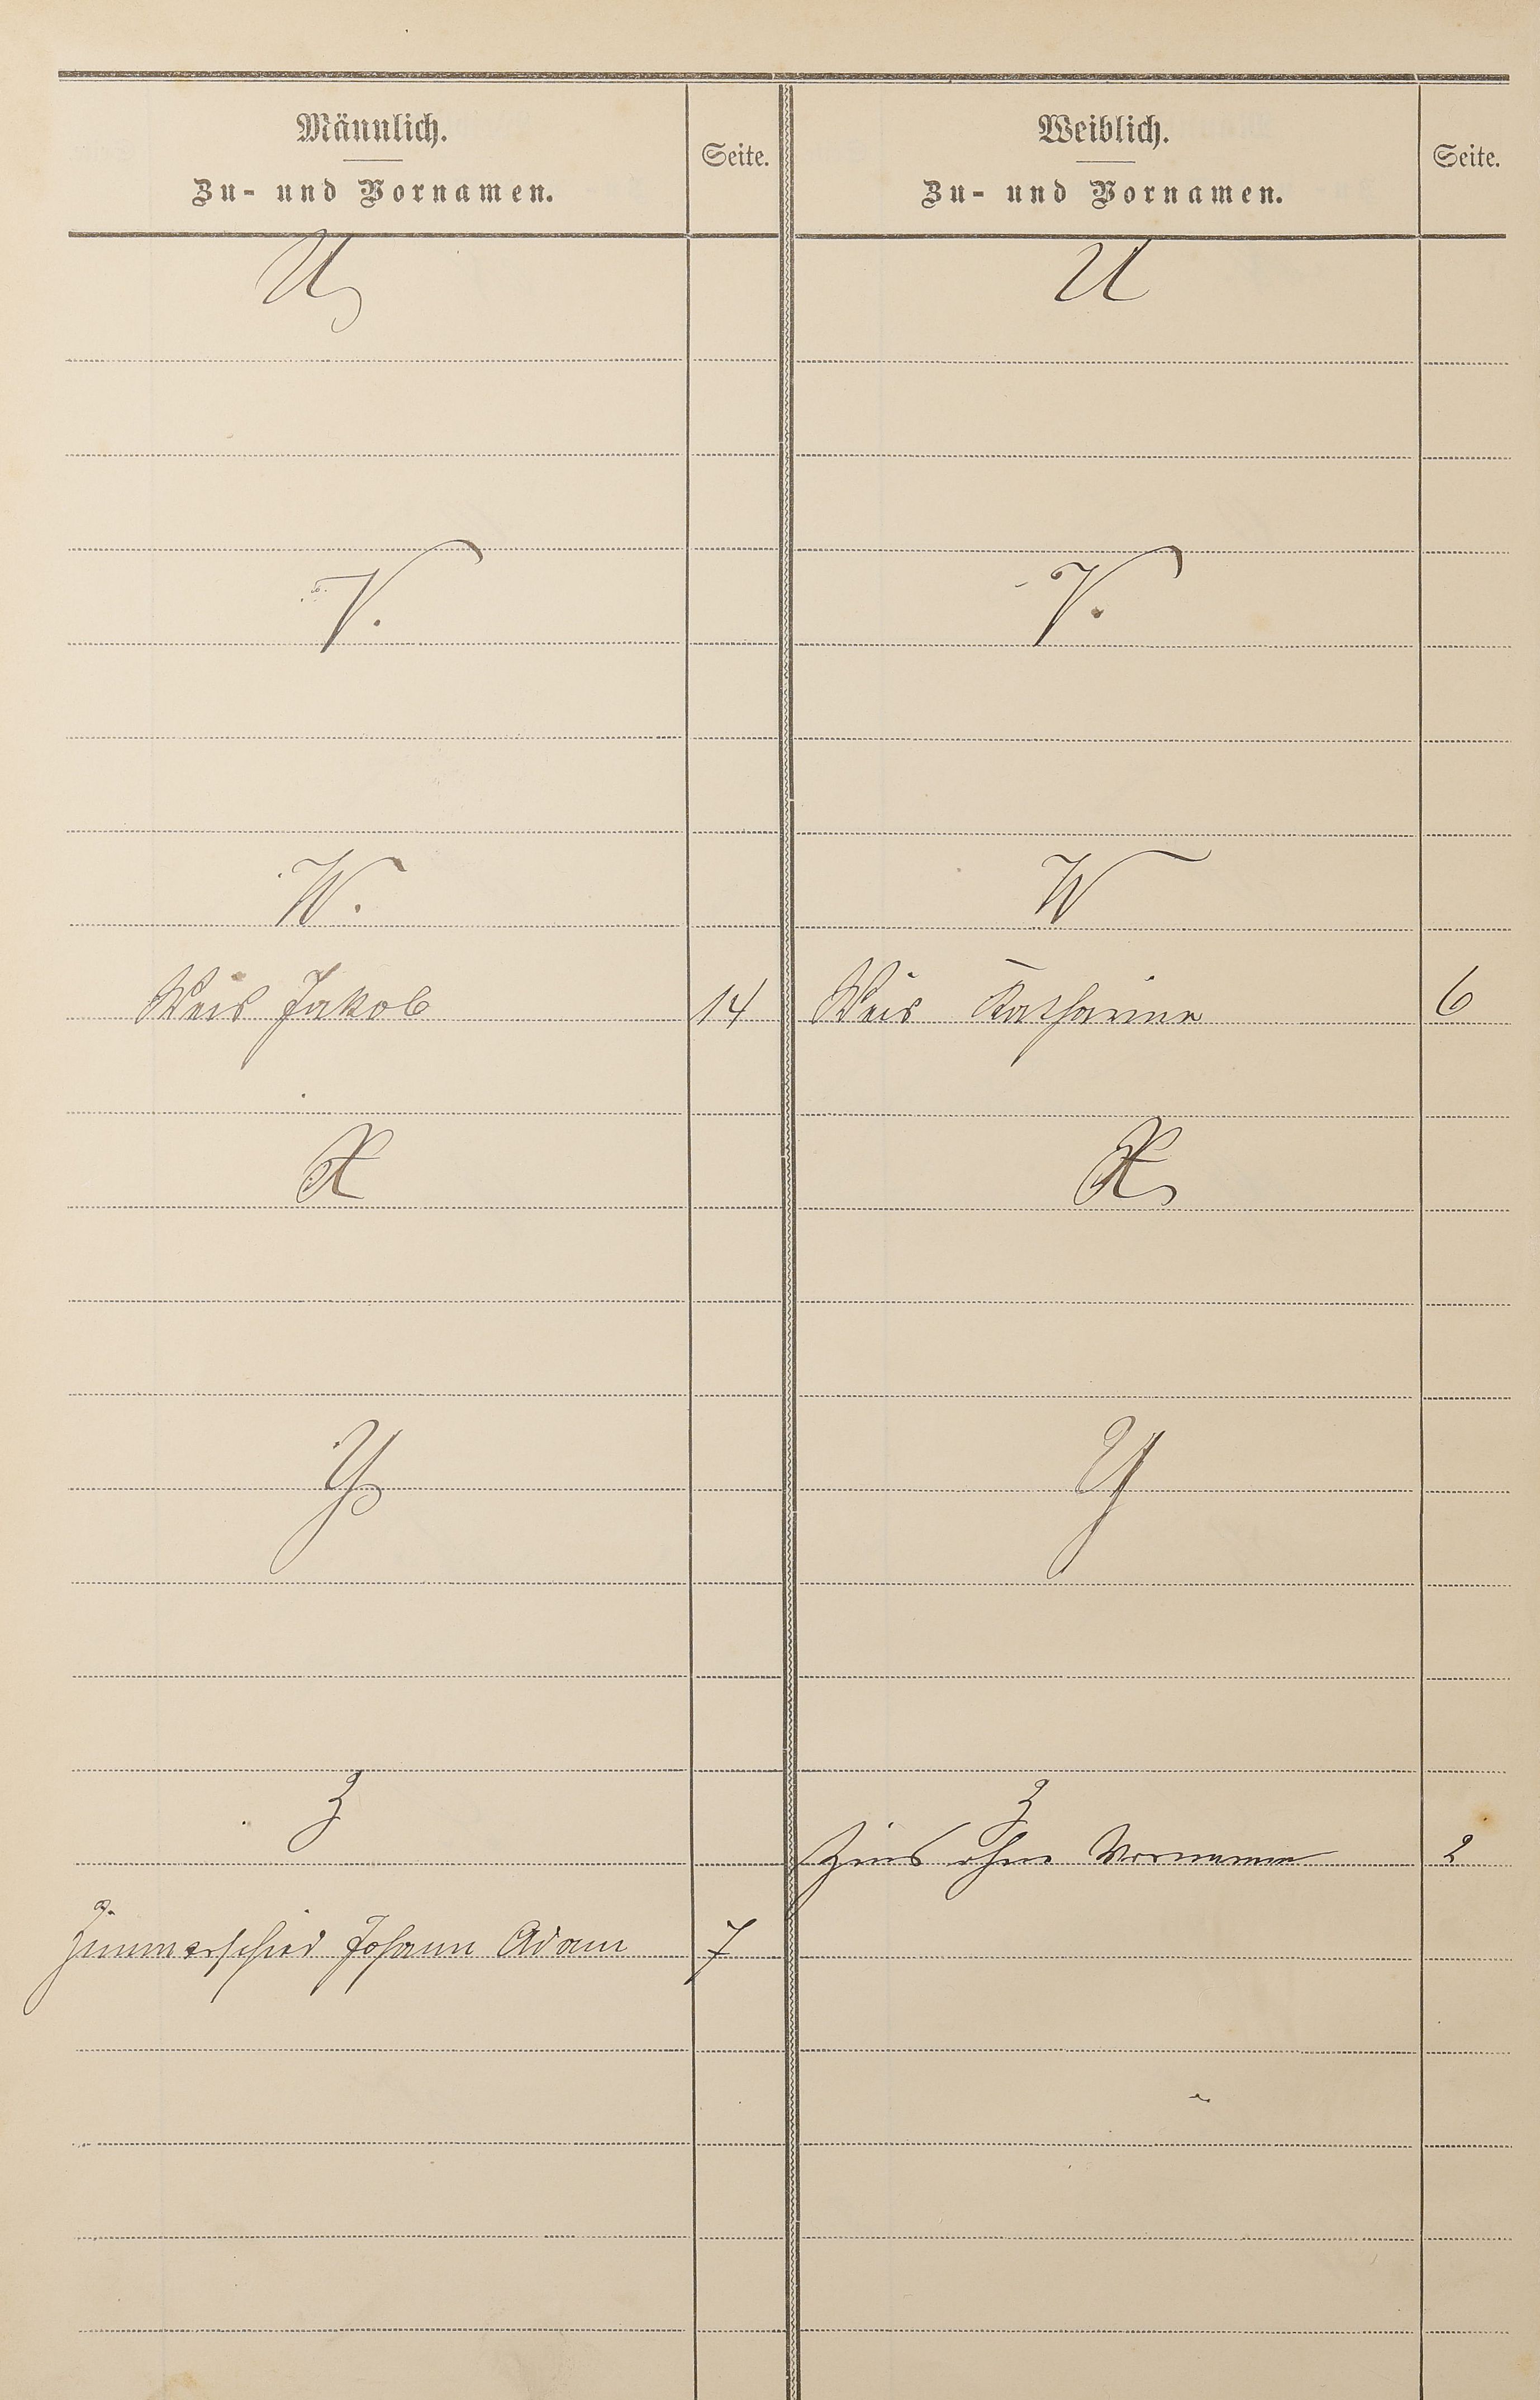 Männlich.
Zu- und Vornamen.
Seite.
Weiblich.
Zu- und Vornamen.
Seite.
U
U
V.
V.
W.
W
Weis Jakob 14
Weis Katharina 6
X
X
Y
Y
Z
Z
Zins ohne Vornamen 2
Zimmerschied Johann Adam 7